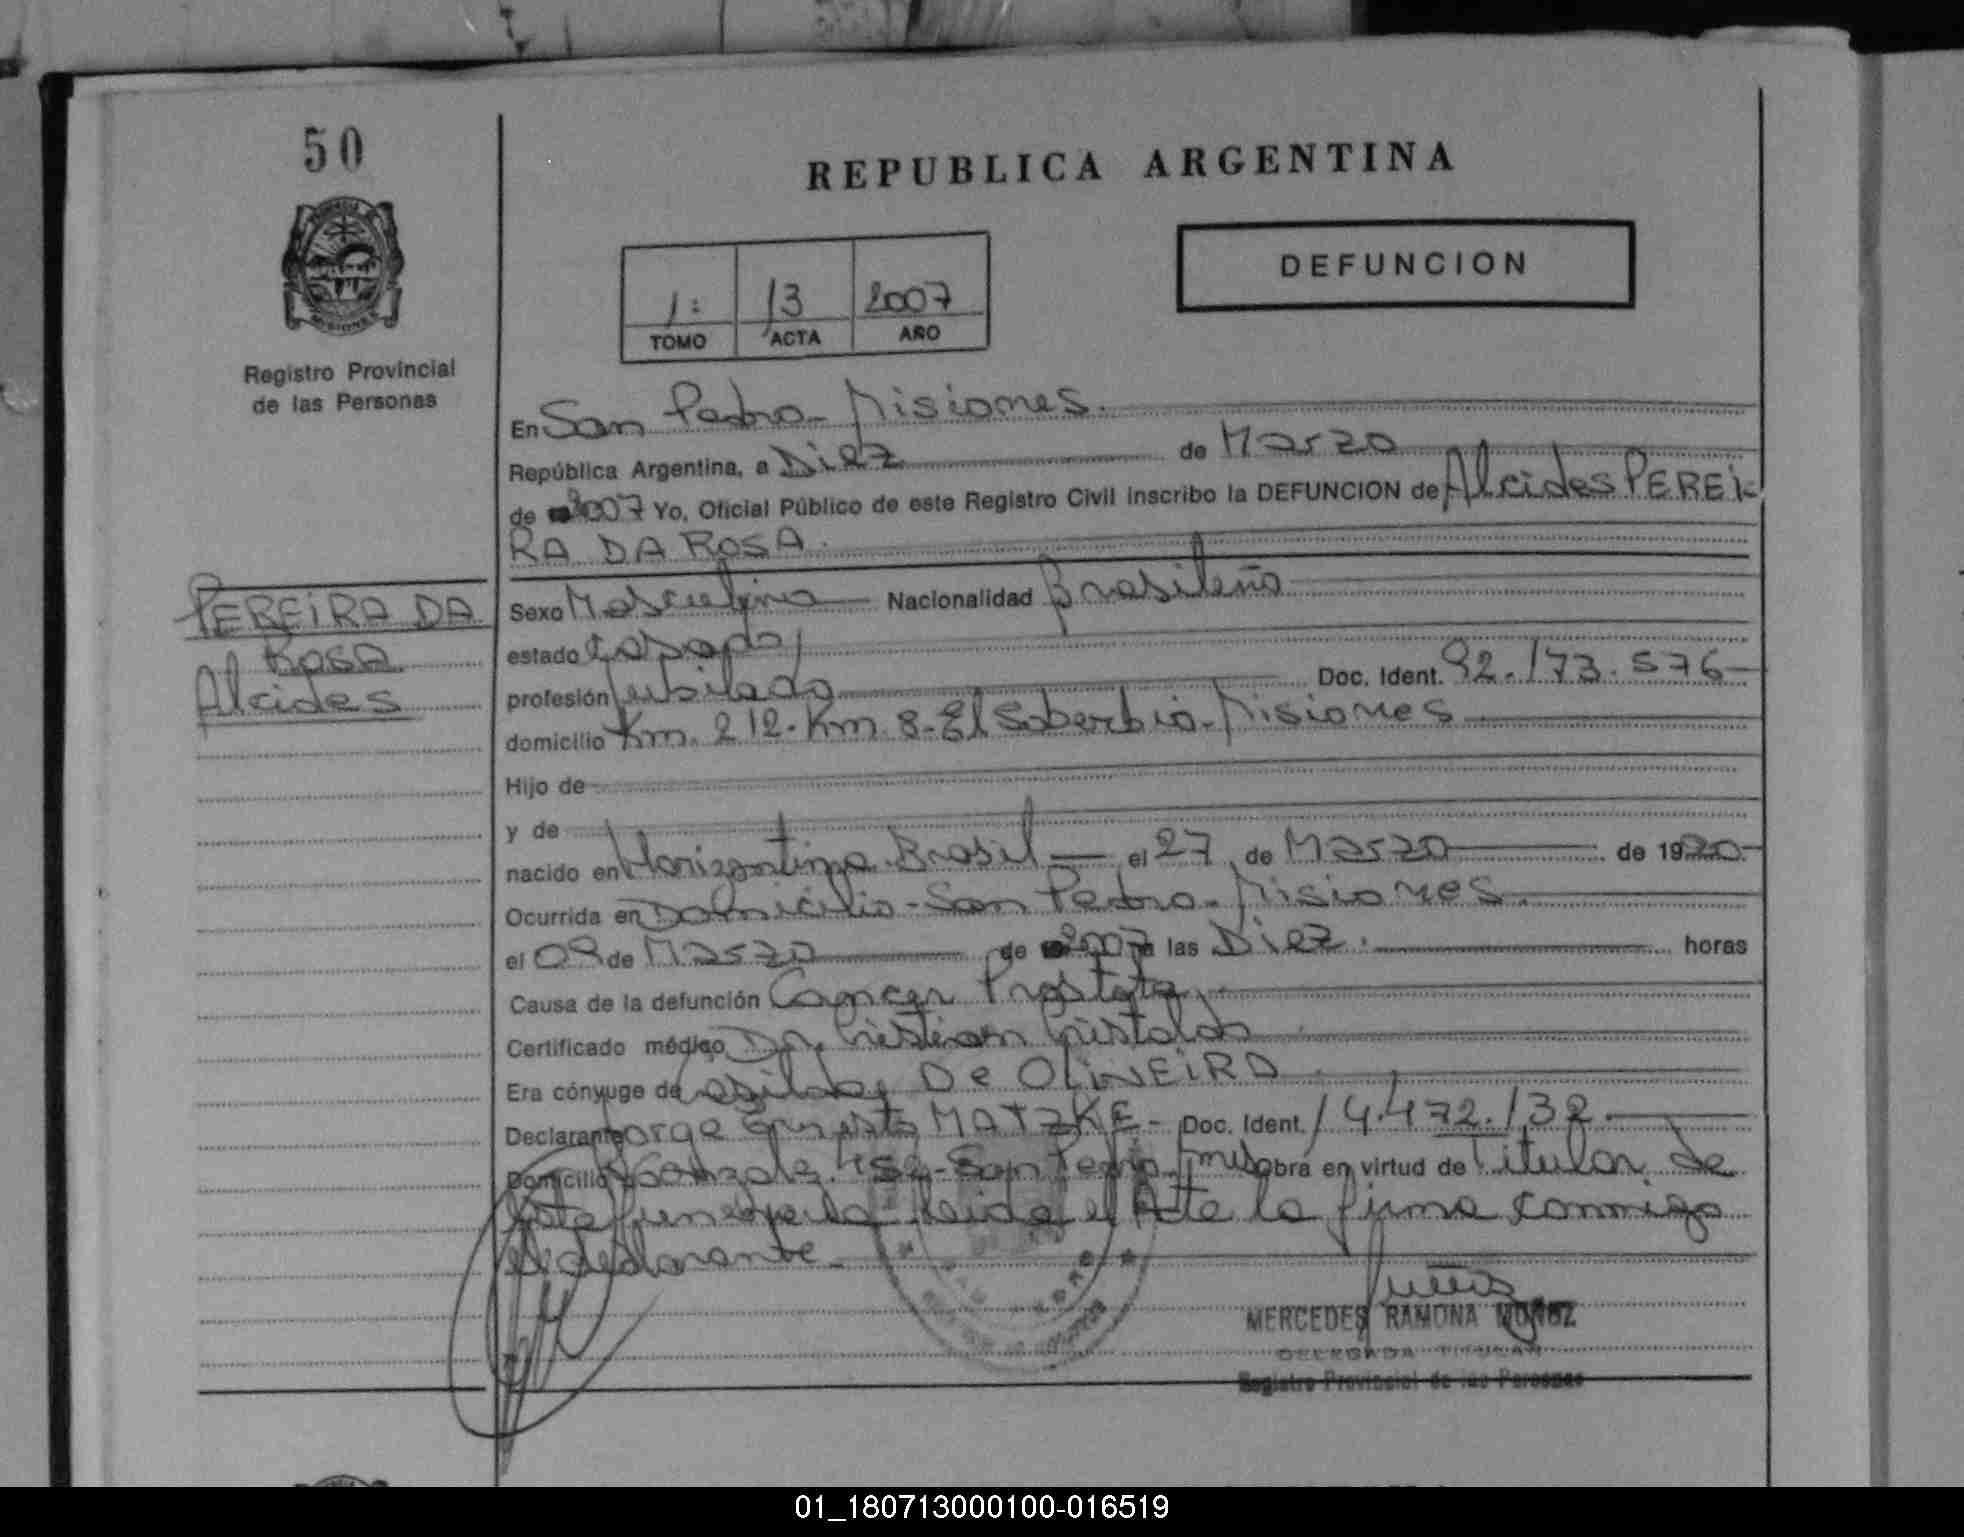 50
REPUBLICA ARGENTINA
PROVINCIA DE
MISIONES
Registro Provincial
de las Personas
1: 13 2007
TOMO ACTA AÑO
DEFUNCION
En San Pedro - Misiones.
República Argentina, a Diez de Marzo
de 2007 Yo, Oficial Público de este Registro Civil inscribo la DEFUNCION de Alcides PEREI-
RA DA ROSA.
PEREIRA DA
ROSA
Alcides
Sexo Masculino Nacionalidad Brasileño
estado Casado
profesión Jubilado Doc. Ident. 92.173.576
domicilio Km. 212. Km 8 - El Soberbio - Misiones
Hijo de
y de
nacido en Horizontina Brasil el 27 de Marzo de 1920
Ocurrida en Domicilio - San Pedro - Misiones.
el 09 de Marzo de 2007 a las Diez. horas
Causa de la defunción Cancer Prostata
Certificado médico Dr. Cristian Cristaldo
Era cónyuge de Casilda De OLIVEIRA
Declarante Jorge Ernesto MATZKE - Doc. Ident. 14.472.132
Domicilio Gonzalez 452 - San Pedro, Mnes obra en virtud de Titular de
funeraria leida el Acta la firma conmigo
el declarante.
SAN PEDRO
MERCEDES RAMONA MUÑOZ
DELEGADA TITULAR
Registro Provincial de las Personas
01_180713000100-016519